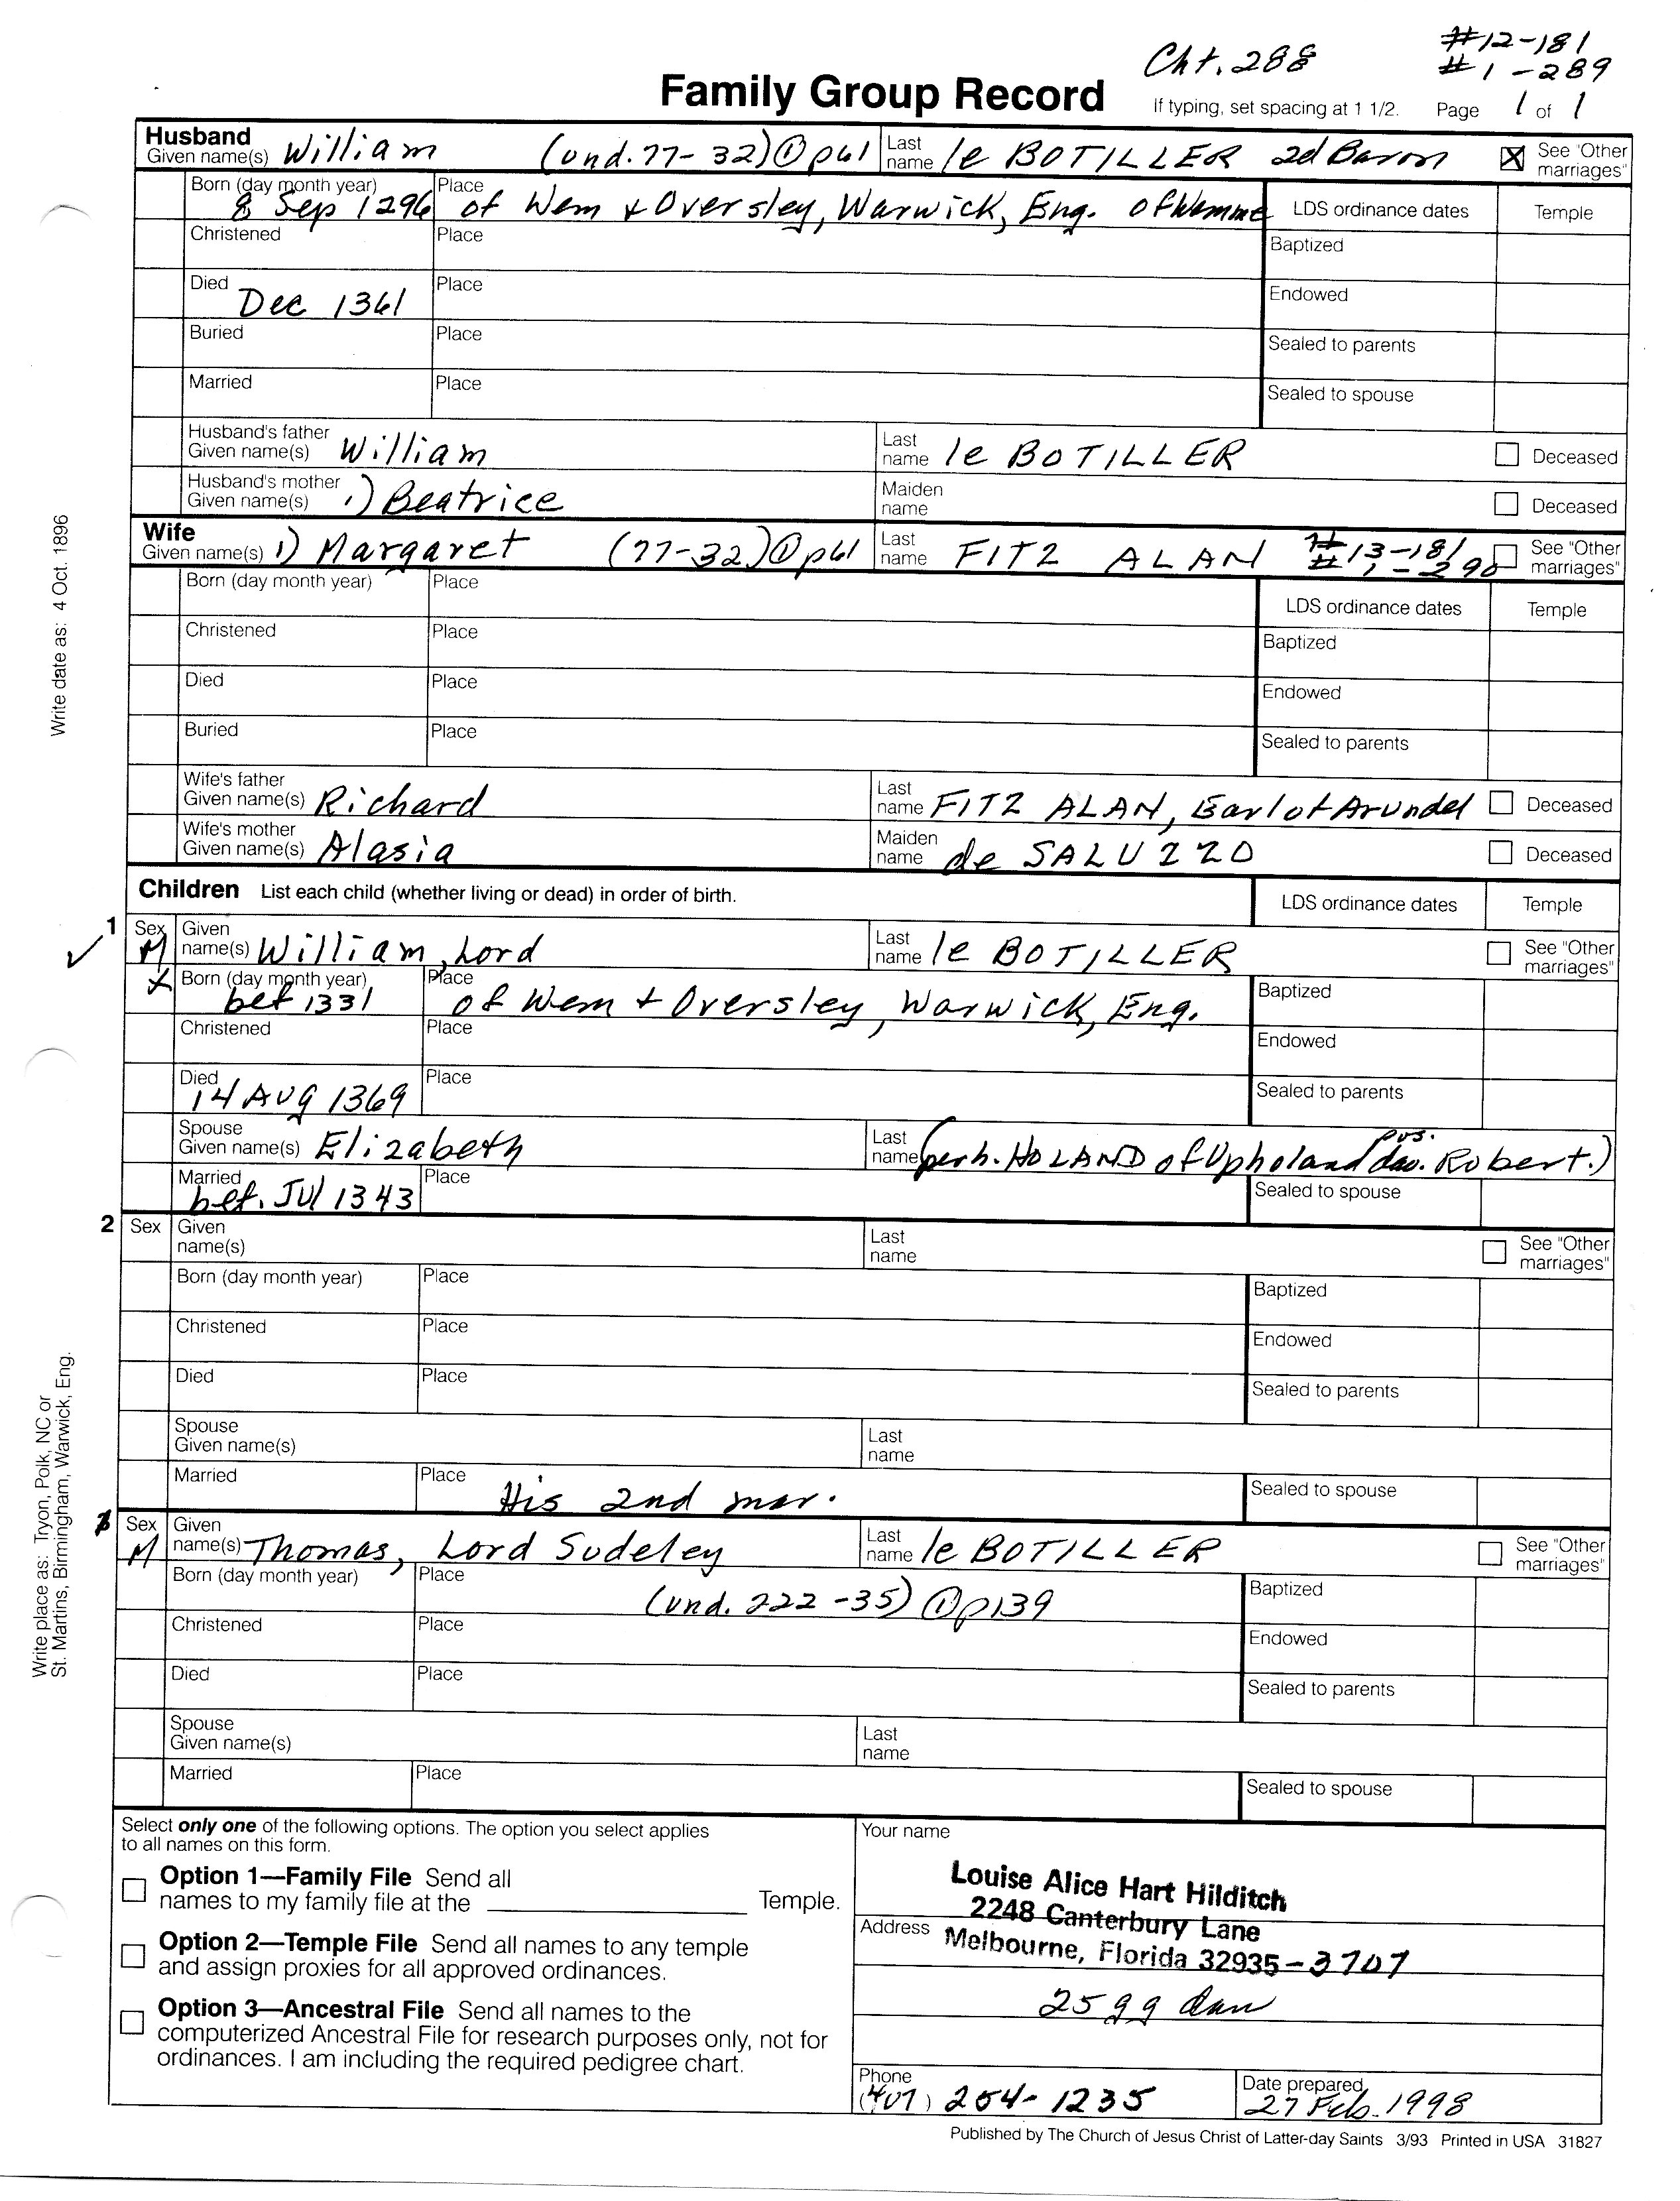 Cht. 288
#12-181
#1-289
Family Group Record
If typing, set spacing at 1 1/2. Page 1 of 1
Husband
Given name(s) William (und. 77-32) ① p61 Last name le BOTILLER 2d Baron ☒ See "Other marriages"
Born (day month year) 8 Sep 1296 Place of Wem & Oversley, Warwick, Eng. of Wemme LDS ordinance dates Temple
Christened Place Baptized
Died Dec 1361 Place Endowed
Buried Place Sealed to parents
Married Place Sealed to spouse
Husband's father Given name(s) William Last name le BOTILLER Deceased
Husband's mother Given name(s) 1) Beatrice Maiden name Deceased
Wife
Given name(s) 1) Margaret (77-32) ① p61 Last name FITZ ALAN #13-181 #1-290 See "Other marriages"
Born (day month year) Place LDS ordinance dates Temple
Christened Place Baptized
Died Place Endowed
Buried Place Sealed to parents
Wife's father Given name(s) Richard Last name FITZ ALAN, Earl of Arundel Deceased
Wife's mother Given name(s) Alasia Maiden name de SALUZZO Deceased
Children List each child (whether living or dead) in order of birth. LDS ordinance dates Temple
1 Sex M Given name(s) William, Lord Last name le BOTILLER See "Other marriages"
X Born (day month year) bef 1331 Place of Wem + Oversley, Warwick, Eng. Baptized
Christened Place Endowed
Died 14 AUG 1369 Place Sealed to parents
Spouse Given name(s) Elizabeth Last name (perh. HOLAND of Upholand pos. dau. Robert.)
Married bef. Jul 1343 Place Sealed to spouse
2 Sex Given name(s) Last name See "Other marriages"
Born (day month year) Place Baptized
Christened Place Endowed
Died Place Sealed to parents
Spouse Given name(s) Last name
Married Place His 2nd mar. Sealed to spouse
Sex M Given name(s) Thomas, Lord Sudeley Last name le BOTILLER See "Other marriages"
Born (day month year) Place (und. 222-35) ① p139 Baptized
Christened Place Endowed
Died Place Sealed to parents
Spouse Given name(s) Last name
Married Place Sealed to spouse
Select only one of the following options. The option you select applies
to all names on this form.
Option 1—Family File Send all
names to my family file at the Temple.
Option 2—Temple File Send all names to any temple
and assign proxies for all approved ordinances.
Option 3—Ancestral File Send all names to the
computerized Ancestral File for research purposes only, not for
ordinances. I am including the required pedigree chart.
Your name
Louise Alice Hart Hilditch
2248 Canterbury Lane
Address Melbourne, Florida 32935-3707
25 gg dau
Phone (407) 254-1235
Date prepared 27 Feb. 1998
Published by The Church of Jesus Christ of Latter-day Saints 3/93 Printed in USA 31827
Write date as: 4 Oct. 1896
Write place as: Tryon, Polk, NC or
St. Martins, Birmingham, Warwick, Eng.